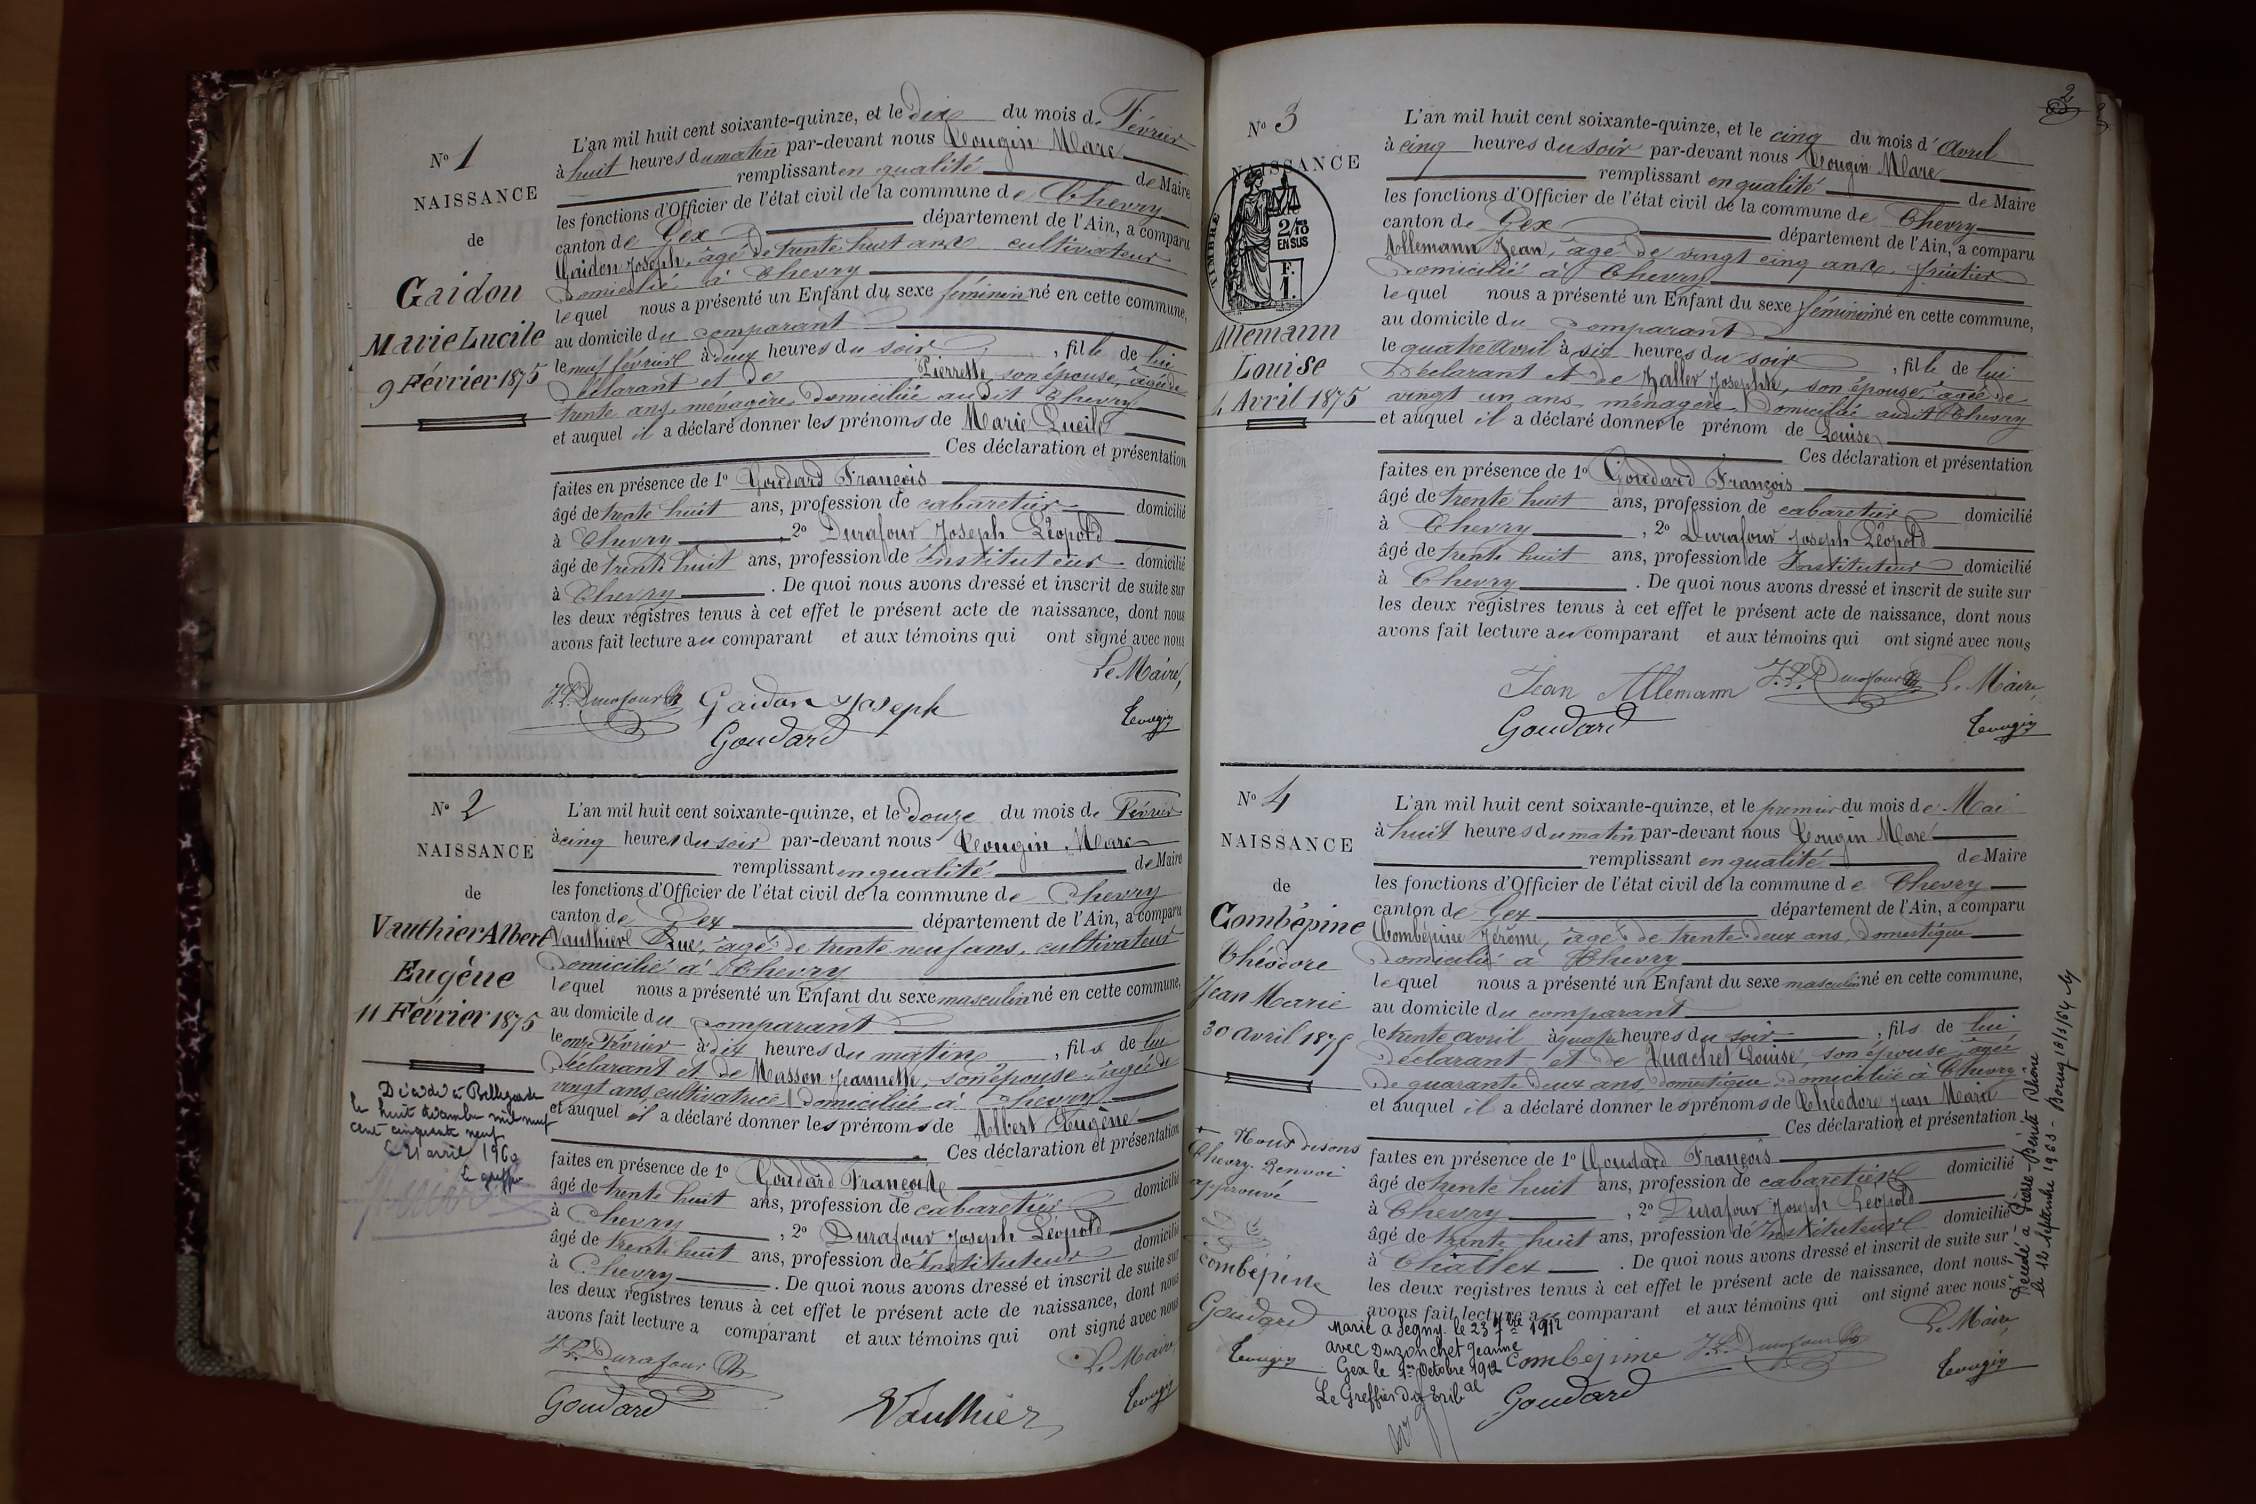 N° 1
NAISSANCE
de
Gaidon
Marie Lucile
9 Février 1875
L'an mil huit cent soixante-quinze, et le dix du mois de Février
à huit heures du matin par-devant nous Tougin Marc
remplissant en qualité de Maire
les fonctions d'Officier de l'état civil de la commune de Chevry
canton de Gex département de l'Ain, a comparu
Gaidon Joseph, âgé de trente huit ans cultivateur
domicilié à Chevry
lequel nous a présenté un Enfant du sexe féminin né en cette commune,
au domicile du comparant
le neuf février à deux heures du soir, fille de lui
déclarant et de Pierrette son épouse, âgée de
trente ans, ménagère, domiciliée audit Chevry
et auquel il a déclaré donner les prénoms de Marie Lucile
Ces déclaration et présentation
faites en présence de 1° Goudard François
âgé de trente huit ans, profession de cabaretier domicilié
à Chevry, 2° Durafour Joseph Léopold
âgé de trente huit ans, profession de Instituteur domicilié
à Chevry. De quoi nous avons dressé et inscrit de suite sur
les deux registres tenus à cet effet le présent acte de naissance, dont nous
avons fait lecture au comparant et aux témoins qui ont signé avec nous
Le Maire,
J. L. Durafour Gaidon Joseph
Goudard Tougin
N° 2
NAISSANCE
de
Vauthier Albert
Eugène
11 Février 1875
Décédé à Bellegarde
le huit décembre mil neuf
cent cinquante neuf
Le 21 avril 1960
Le greffier
L'an mil huit cent soixante-quinze, et le douze du mois de Février
à cinq heures du soir par-devant nous Tougin Marc
remplissant en qualité de Maire
les fonctions d'Officier de l'état civil de la commune de Chevry
canton de Gex département de l'Ain, a comparu
Vauthier Luc, âgé de trente neuf ans, cultivateur
domicilié à Chevry
lequel nous a présenté un Enfant du sexe masculin né en cette commune,
au domicile du comparant
le onze Février à dix heures du matin, fils de lui
déclarant et de Masson Jeannette, son épouse, âgée de
vingt ans, cultivatrice domiciliée à Chevry
et auquel il a déclaré donner les prénoms de Albert Eugène
Ces déclaration et présentation
faites en présence de 1° Goudard François
âgé de trente huit ans, profession de cabaretier domicilié
à Chevry, 2° Durafour Joseph Léopold
âgé de trente huit ans, profession de Instituteur domicilié
à Chevry. De quoi nous avons dressé et inscrit de suite sur
les deux registres tenus à cet effet le présent acte de naissance, dont nous
avons fait lecture a comparant et aux témoins qui ont signé avec nous
J. L. Durafour Le Maire,
Goudard Vauthier Tougin
2
N° 3
NAISSANCE
de
TIMBRE
2/10
EN SUS
F.
1.
Allemann
Louise
4 Avril 1875
L'an mil huit cent soixante-quinze, et le cinq du mois d'Avril
à cinq heures du soir par-devant nous Tougin Marc
remplissant en qualité de Maire
les fonctions d'Officier de l'état civil de la commune de Chevry
canton de Gex département de l'Ain, a comparu
Allemann Jean, âgé de vingt cinq ans, fruitier
domicilié à Chevry
lequel nous a présenté un Enfant du sexe féminin né en cette commune,
au domicile du comparant
le quatre Avril à six heures du soir, fille de lui
déclarant et de Haller Josephte, son épouse, âgée de
vingt un ans, ménagère, domiciliée audit Chevry
et auquel il a déclaré donner le prénom de Louise
Ces déclaration et présentation
faites en présence de 1° Goudard François
âgé de trente huit ans, profession de cabaretier domicilié
à Chevry, 2° Durafour Joseph Léopold
âgé de trente huit ans, profession de Instituteur domicilié
à Chevry. De quoi nous avons dressé et inscrit de suite sur
les deux registres tenus à cet effet le présent acte de naissance, dont nous
avons fait lecture au comparant et aux témoins qui ont signé avec nous
Jean Allemann J. L. Durafour Le Maire,
Goudard Tougin
N° 4
NAISSANCE
de
Combépine
Théodore
Jean Marie
30 avril 1875
+ Nous disons
Chevry. Renvoi
approuvé
Combépine
Goudard
Tougin
L'an mil huit cent soixante-quinze, et le premier du mois de Mai
à huit heures du matin par-devant nous Tougin Marc
remplissant en qualité de Maire
les fonctions d'Officier de l'état civil de la commune de Chevry
canton de Gex département de l'Ain, a comparu
Combépine Jérôme, âgé de trente deux ans, domestique
domicilié à Chevry
lequel nous a présenté un Enfant du sexe masculin né en cette commune,
au domicile du comparant
le trente avril à quatre heures du soir, fils de lui
déclarant et de Louise, son épouse, âgée
de quarante deux ans, domestique, domiciliée à Chevry
et auquel il a déclaré donner les prénoms de Théodore Jean Marie
Ces déclaration et présentation
faites en présence de 1° Goudard François
âgé de trente huit ans, profession de cabaretier domicilié
à Chevry, 2° Durafour Joseph Léopold
âgé de trente huit ans, profession de Instituteur domicilié
à Challex. De quoi nous avons dressé et inscrit de suite sur
les deux registres tenus à cet effet le présent acte de naissance, dont nous
avons fait lecture au comparant et aux témoins qui ont signé avec nous
Marié à Segny le 23 7bre 1912
avec Duzonchet Jeanne
Gex le 1er Octobre 1912
Le Greffier du Tribal
Combépine J. L. Durafour Le Maire,
Goudard Tougin
Décédé à Pierre-Bénite Rhône
le 12 septembre 1963 - Bourg 10/3/64